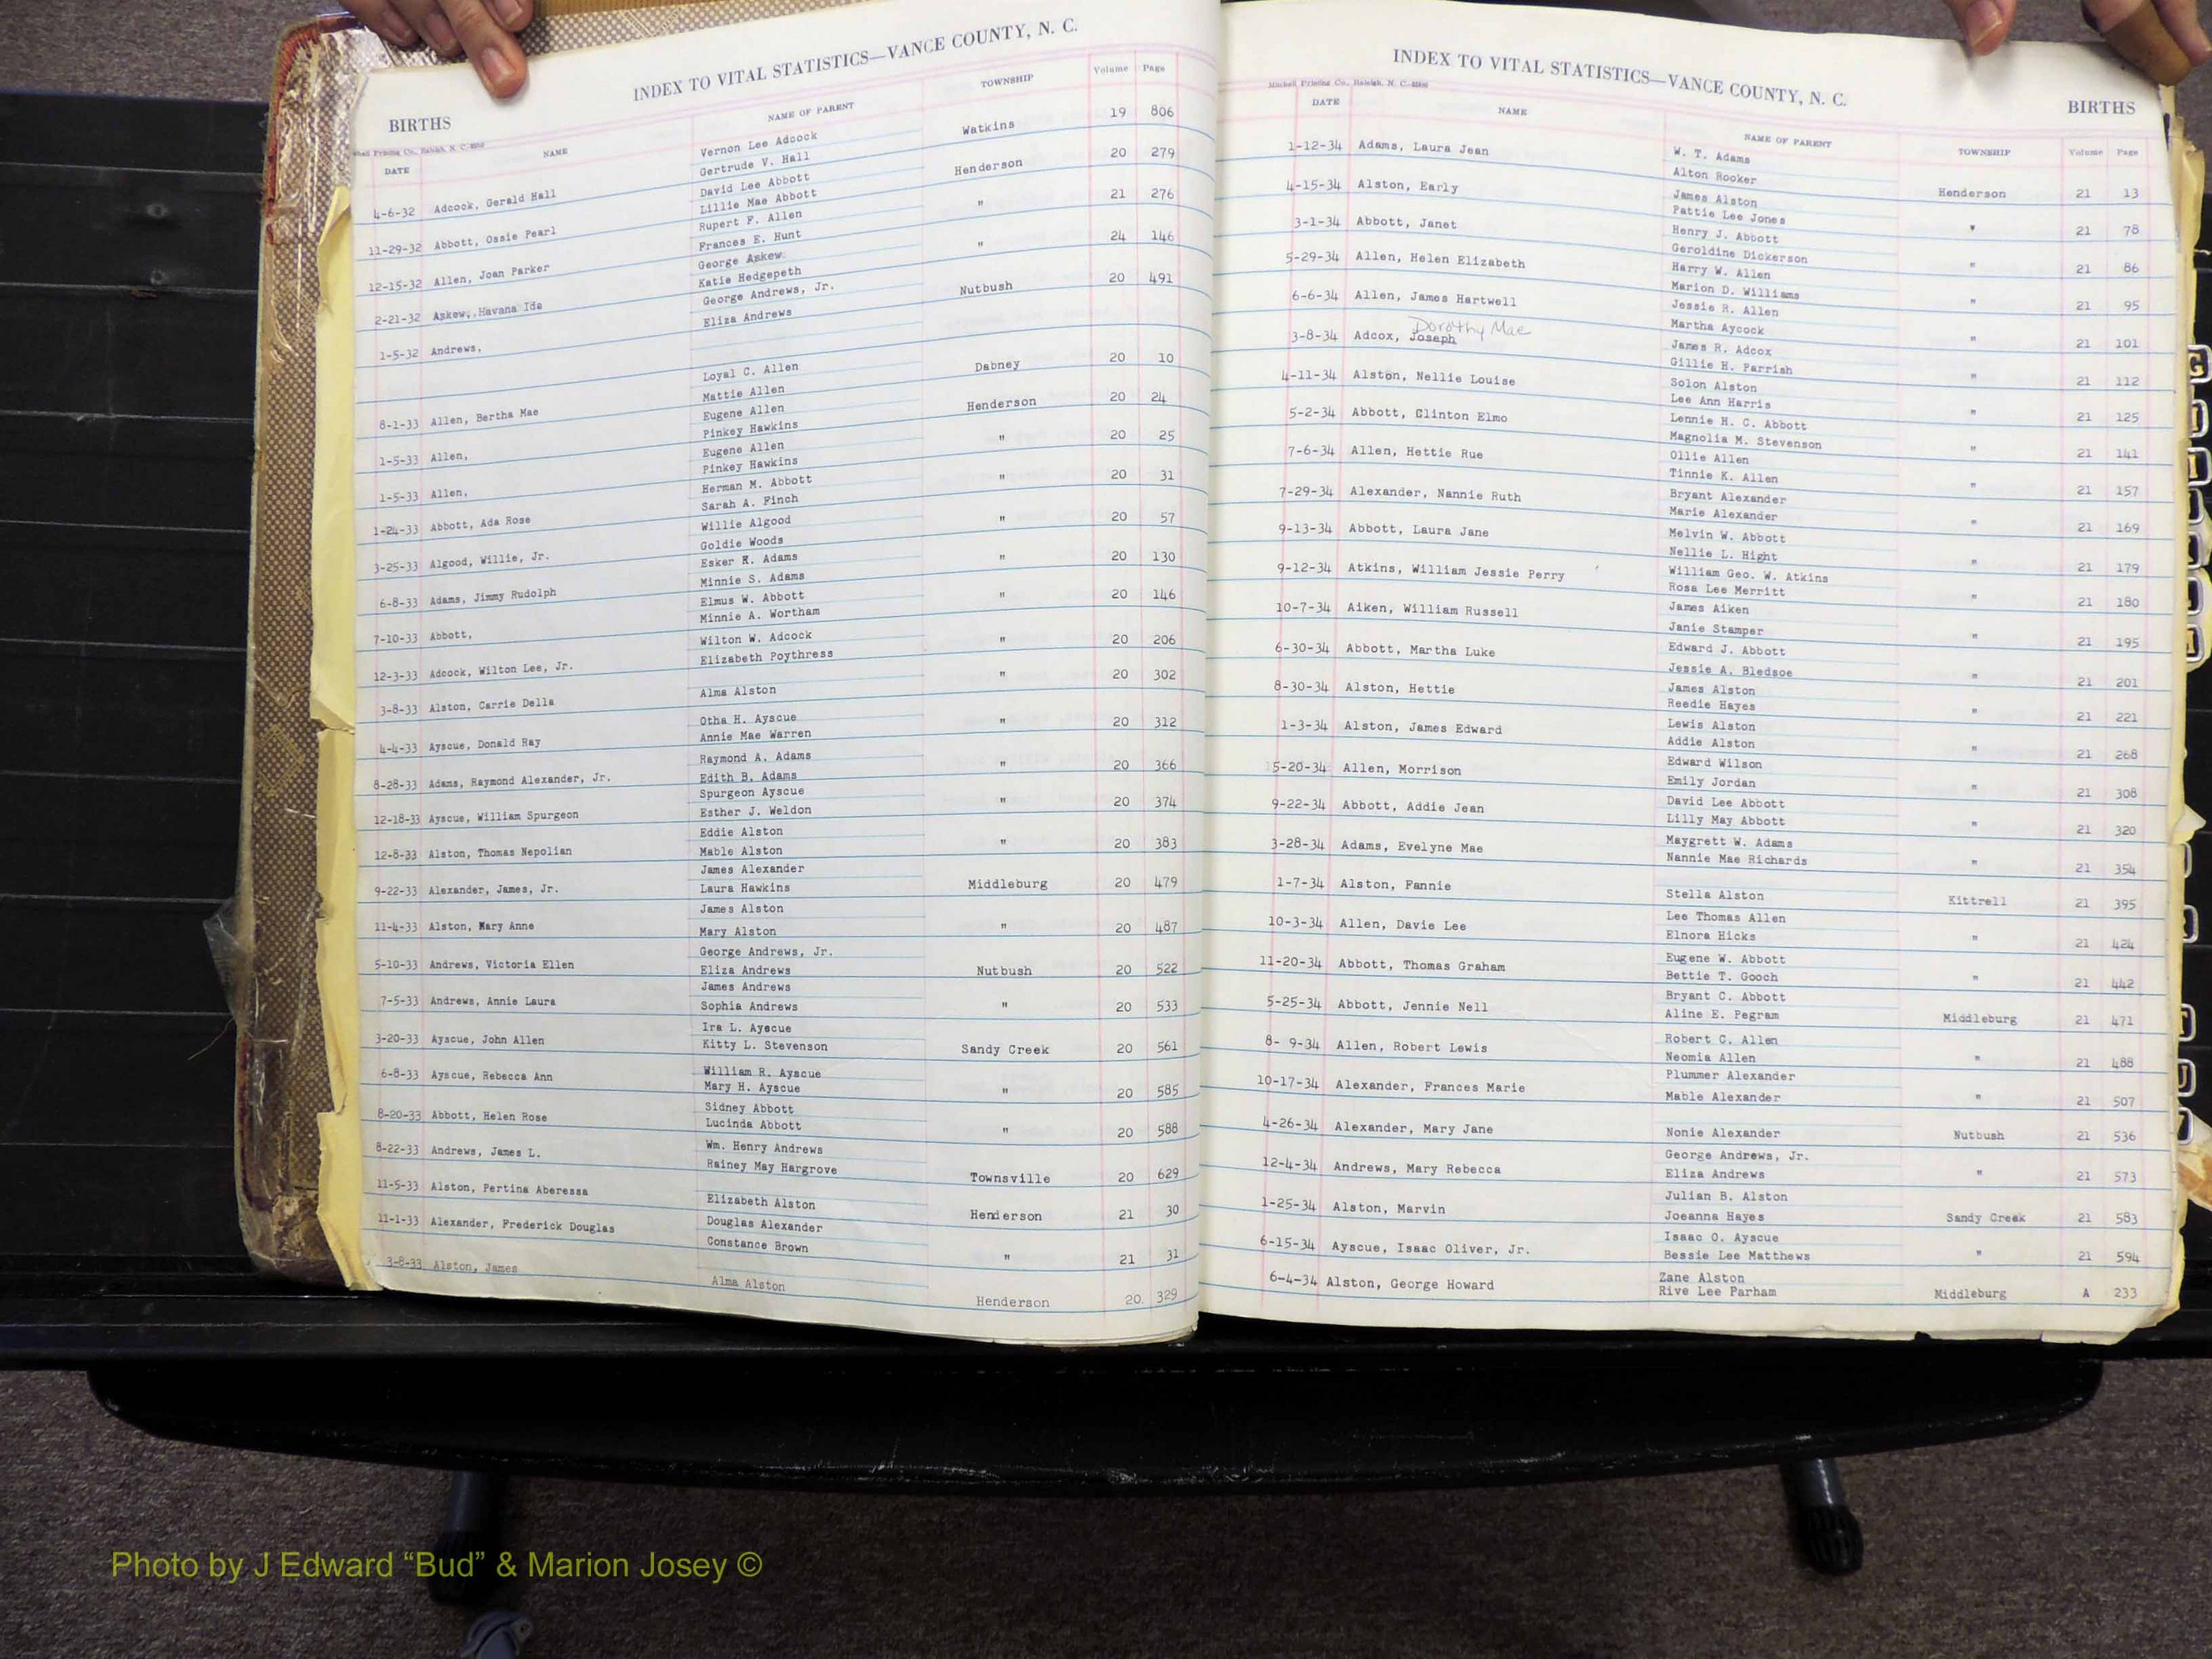 INDEX TO VITAL STATISTICS—VANCE COUNTY, N. C.
BIRTHS
DATE NAME NAME OF PARENT TOWNSHIP Volume Page
4-6-32 Adcock, Gerald Hall Vernon Lee Adcock Watkins 19 806
Gertrude V. Hall
11-29-32 Abbott, Ossie Pearl David Lee Abbott Henderson 20 279
Lillie Mae Abbott
12-15-32 Allen, Joan Parker Rupert F. Allen " 21 276
Frances E. Hunt
2-21-32 Askew, Havana Ide George Askew " 24 146
Katie Hedgepeth
1-5-32 Andrews, George Andrews, Jr. Nutbush 20 491
Eliza Andrews
8-1-33 Allen, Bertha Mae Loyal C. Allen Dabney 20 10
Mattie Allen
1-5-33 Allen, Eugene Allen Henderson 20 24
Pinkey Hawkins
1-5-33 Allen, Eugene Allen " 20 25
Pinkey Hawkins
1-24-33 Abbott, Ada Rose Herman M. Abbott " 20 31
Sarah A. Finch
3-25-33 Algood, Willie, Jr. Willie Algood " 20 57
Goldie Woods
6-8-33 Adams, Jimmy Rudolph Esker R. Adams " 20 130
Minnie S. Adams
7-10-33 Abbott, Elmus W. Abbott " 20 146
Minnie A. Wortham
12-3-33 Adcock, Wilton Lee, Jr. Wilton W. Adcock " 20 206
Elizabeth Poythress
3-8-33 Alston, Carrie Della Alma Alston " 20 302
4-4-33 Ayscue, Donald Ray Otha H. Ayscue " 20 312
Annie Mae Warren
8-28-33 Adams, Raymond Alexander, Jr. Raymond A. Adams " 20 366
Edith B. Adams
12-18-33 Ayscue, William Spurgeon Spurgeon Ayscue " 20 374
Esther J. Weldon
12-8-33 Alston, Thomas Nepolian Eddie Alston " 20 383
Mable Alston
9-22-33 Alexander, James, Jr. James Alexander Middleburg 20 479
Laura Hawkins
11-4-33 Alston, Mary Anne James Alston " 20 487
Mary Alston
5-10-33 Andrews, Victoria Ellen George Andrews, Jr. Nutbush 20 522
Eliza Andrews
7-5-33 Andrews, Annie Laura James Andrews " 20 533
Sophia Andrews
3-20-33 Ayscue, John Allen Ira L. Ayscue Sandy Creek 20 561
Kitty L. Stevenson
6-8-33 Ayscue, Rebecca Ann William R. Ayscue " 20 585
Mary H. Ayscue
8-20-33 Abbott, Helen Rose Sidney Abbott " 20 588
Lucinda Abbott
8-22-33 Andrews, James L. Wm. Henry Andrews Townsville 20 629
Rainey May Hargrove
11-5-33 Alston, Pertina Aberessa Elizabeth Alston Henderson 21 30
11-1-33 Alexander, Frederick Douglas Douglas Alexander " 21 31
Constance Brown
3-8-33 Alston, James Alma Alston Henderson 20. 329
INDEX TO VITAL STATISTICS—VANCE COUNTY, N. C.
Mitchell Printing Co., Raleigh, N. C.
BIRTHS
DATE NAME NAME OF PARENT TOWNSHIP Volume Page
1-12-34 Adams, Laura Jean W. T. Adams Henderson 21 13
Alton Rooker
4-15-34 Alston, Early James Alston " 21 78
Pattie Lee Jones
3-1-34 Abbott, Janet Henry J. Abbott " 21 86
Geroldine Dickerson
5-29-34 Allen, Helen Elizabeth Harry W. Allen " 21 95
Marion D. Williams
6-6-34 Allen, James Hartwell Jessie R. Allen " 21 101
Martha Aycock
Dorothy Mae
3-8-34 Adcox, Joseph James R. Adcox " 21 112
Gillie H. Parrish
4-11-34 Alston, Nellie Louise Solon Alston " 21 125
Lee Ann Harris
5-2-34 Abbott, Clinton Elmo Lennie H. C. Abbott " 21 141
Magnolia M. Stevenson
7-6-34 Allen, Hettie Rue Ollie Allen " 21 157
Tinnie K. Allen
7-29-34 Alexander, Nannie Ruth Bryant Alexander " 21 169
Marie Alexander
9-13-34 Abbott, Laura Jane Melvin W. Abbott " 21 179
Nellie L. Hight
9-12-34 Atkins, William Jessie Perry William Geo. W. Atkins " 21 180
Rosa Lee Merritt
10-7-34 Aiken, William Russell James Aiken " 21 195
Janie Stamper
6-30-34 Abbott, Martha Luke Edward J. Abbott " 21 201
Jessie A. Bledsoe
8-30-34 Alston, Hettie James Alston " 21 221
Reedie Hayes
1-3-34 Alston, James Edward Lewis Alston " 21 268
Addie Alston
15-20-34 Allen, Morrison Edward Wilson " 21 308
Emily Jordan
9-22-34 Abbott, Addie Jean David Lee Abbott " 21 320
Lilly May Abbott
3-28-34 Adams, Evelyne Mae Maygrett W. Adams " 21 354
Nannie Mae Richards
1-7-34 Alston, Fannie Stella Alston Kittrell 21 395
10-3-34 Allen, Davie Lee Lee Thomas Allen " 21 424
Elnora Hicks
11-20-34 Abbott, Thomas Graham Eugene W. Abbott " 21 442
Bettie T. Gooch
5-25-34 Abbott, Jennie Nell Bryant C. Abbott Middleburg 21 471
Aline E. Pegram
8- 9-34 Allen, Robert Lewis Robert C. Allen " 21 488
Neomia Allen
10-17-34 Alexander, Frances Marie Plummer Alexander " 21 507
Mable Alexander
4-26-34 Alexander, Mary Jane Nonie Alexander Nutbush 21 536
12-4-34 Andrews, Mary Rebecca George Andrews, Jr. " 21 573
Eliza Andrews
1-25-34 Alston, Marvin Julian B. Alston Sandy Creek 21 583
Joeanna Hayes
6-15-34 Ayscue, Isaac Oliver, Jr. Isaac O. Ayscue " 21 594
Bessie Lee Matthews
6-4-34 Alston, George Howard Zane Alston Middleburg A 233
Rive Lee Parham
Photo by J Edward “Bud” & Marion Josey ©